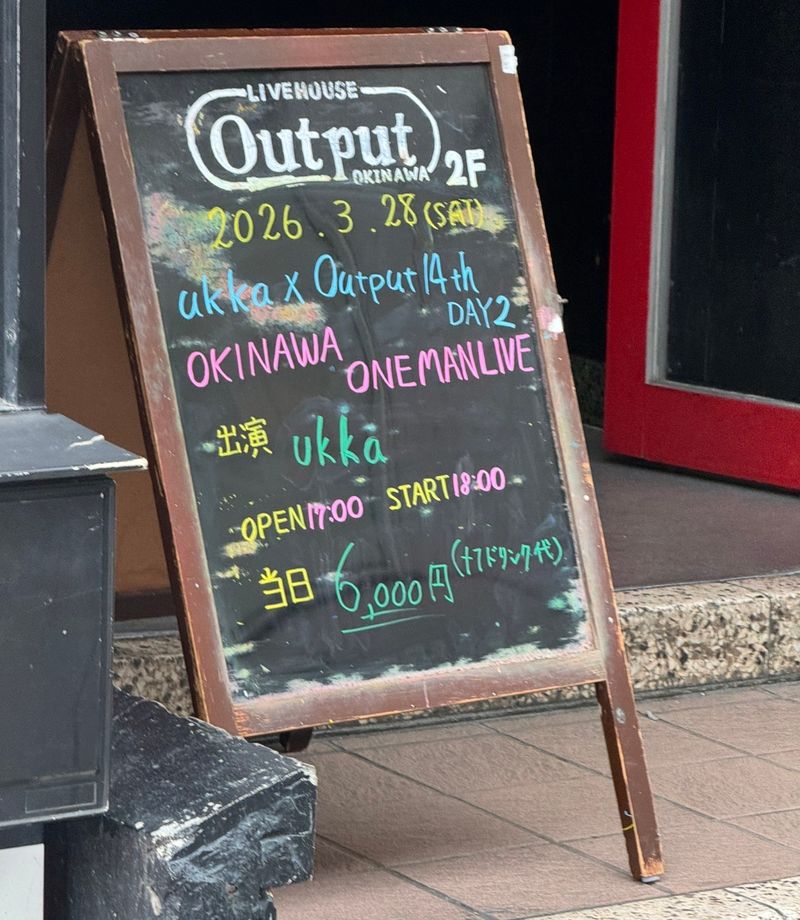 LIVEHOUSE
Output
OKINAWA 2F
2026.3.28(SAT)
ukka x Output 14th
DAY2
OKINAWA
ONEMANLIVE
出演 ukka
OPEN17:00 START18:00
当日 6,000円(+1ドリンク代)